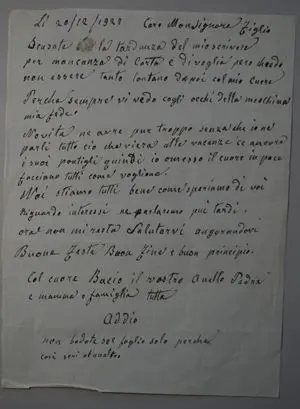 Lì 20/12/1921 Caro Monsignore Figlio
Scusate la tardanza del mio scrivere
per mancanza di Carta e di voglia però credo
non essere tanto lontano da voi col mio Cuore
Perchè Sempre vi vedo cogli occhi della meschina
mia fede.
Novità ne avre pur troppo senza che io ne
parli tutto ciò che viera alle vacanze ce ancora
i suoi pontigli quindi io o messo il cuore in pace
facciano tutti come vogliono!
Noi stiamo tutti bene come speriamo di voi
Riguardo interessi ne parlaremo più tardi,
ora non mi resta Salutarvi augurandovi
Buone Feste Buon Fine e buon principio.
Col cuore Bacio il vostro Anello Padre
e mamma e famiglia tutta
Addio
non badate sel foglio solo perchè
così